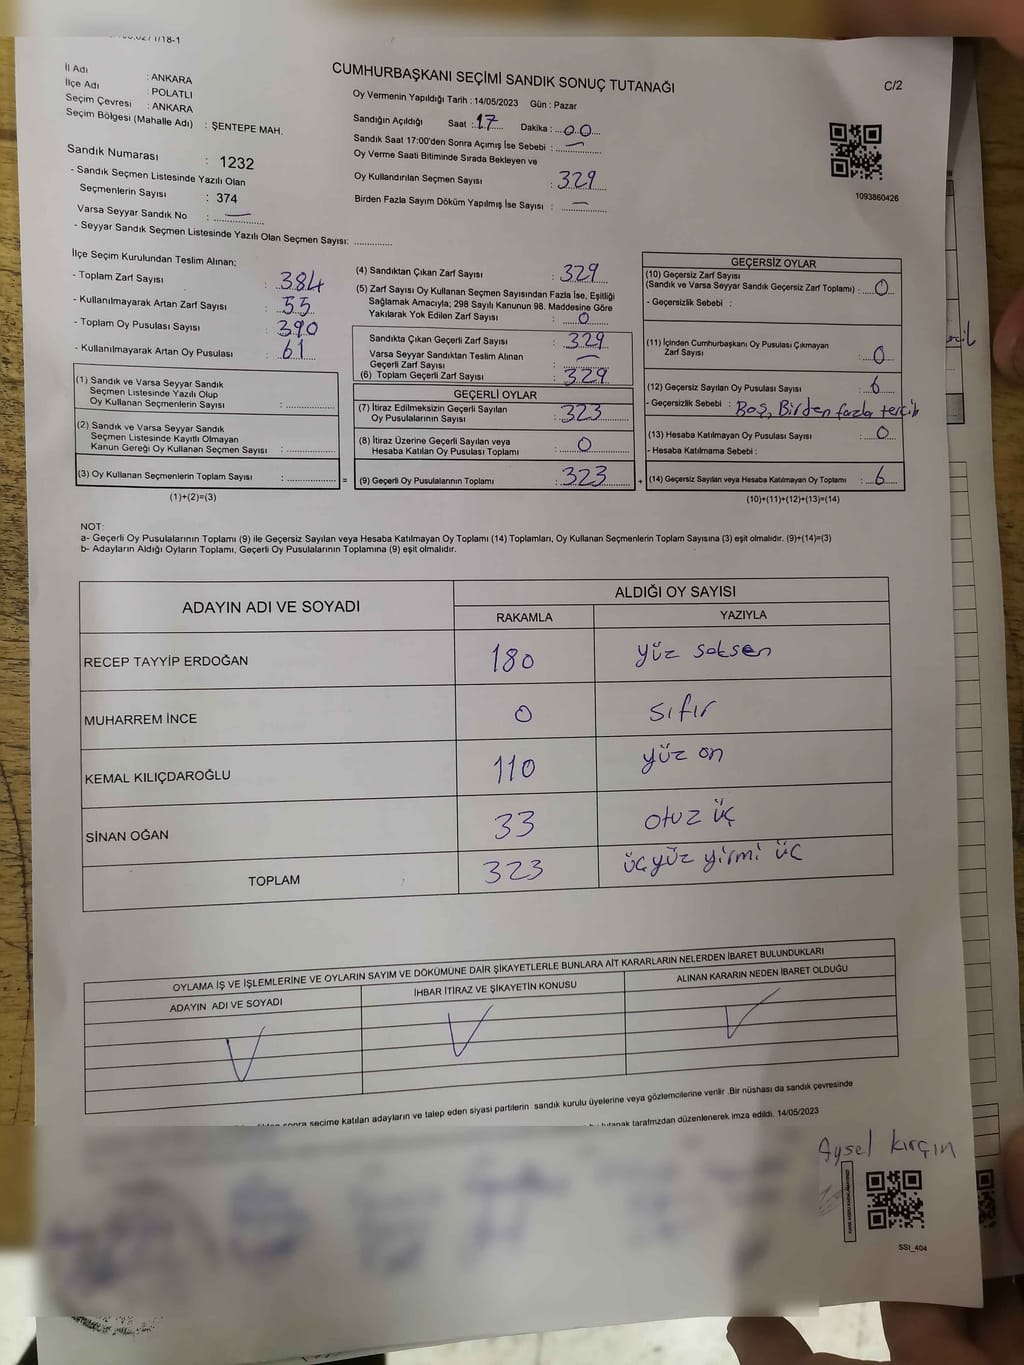 CUMHURBAŞKANI SEÇİMİ SANDIK SONUÇ TUTANAĞI
C/2
İl Adı : ANKARA
İlçe Adı : POLATLI
Seçim Çevresi : ANKARA
Seçim Bölgesi (Mahalle Adı) : ŞENTEPE MAH.
Sandık Numarası : 1232
- Sandık Seçmen Listesinde Yazılı Olan
Seçmenlerin Sayısı : 374
Varsa Seyyar Sandık No : —
- Seyyar Sandık Seçmen Listesinde Yazılı Olan Seçmen Sayısı: ............
Oy Vermenin Yapıldığı Tarih : 14/05/2023 Gün : Pazar
Sandığın Açıldığı Saat : 17 Dakika : 00
Sandık Saat 17:00'den Sonra Açımış İse Sebebi : —
Oy Verme Saati Bitiminde Sırada Bekleyen ve
Oy Kullandırılan Seçmen Sayısı : 329
Birden Fazla Sayım Döküm Yapılmış İse Sayısı : —
1093860426
İlçe Seçim Kurulundan Teslim Alınan;
- Toplam Zarf Sayısı : 384
- Kullanılmayarak Artan Zarf Sayısı : 55
- Toplam Oy Pusulası Sayısı : 390
- Kullanılmayarak Artan Oy Pusulası : 61
(1) Sandık ve Varsa Seyyar Sandık
Seçmen Listesinde Yazılı Olup
Oy Kullanan Seçmenlerin Sayısı : ............
(2) Sandık ve Varsa Seyyar Sandık
Seçmen Listesinde Kayıtlı Olmayan
Kanun Gereği Oy Kullanan Seçmen Sayısı : ............
(3) Oy Kullanan Seçmenlerin Toplam Sayısı : ............ =
(1)+(2)=(3)
(4) Sandıktan Çıkan Zarf Sayısı : 329
(5) Zarf Sayısı Oy Kullanan Seçmen Sayısından Fazla İse, Eşitliği
Sağlamak Amacıyla; 298 Sayılı Kanunun 98. Maddesine Göre
Yakılarak Yok Edilen Zarf Sayısı : 0
Sandıkta Çıkan Geçerli Zarf Sayısı : 329
Varsa Seyyar Sandıktan Teslim Alınan
Geçerli Zarf Sayısı : —
(6) Toplam Geçerli Zarf Sayısı : 329
GEÇERLİ OYLAR
(7) İtiraz Edilmeksizin Geçerli Sayılan
Oy Pusulalarının Sayısı : 323
(8) İtiraz Üzerine Geçerli Sayılan veya
Hesaba Katılan Oy Pusulası Toplamı : 0
(9) Geçerli Oy Pusulalarının Toplamı : 323 +
GEÇERSİZ OYLAR
(10) Geçersiz Zarf Sayısı
(Sandık ve Varsa Seyyar Sandık Geçersiz Zarf Toplamı) : 0
- Geçersizlik Sebebi :
(11) İçinden Cumhurbaşkanı Oy Pusulası Çıkmayan
Zarf Sayısı : 0
(12) Geçersiz Sayılan Oy Pusulası Sayısı : 6
- Geçersizlik Sebebi : Boş, Birden fazla tercih
(13) Hesaba Katılmayan Oy Pusulası Sayısı : 0
- Hesaba Katılmama Sebebi :
(14) Geçersiz Sayılan veya Hesaba Katılmayan Oy Toplamı : 6
(10)+(11)+(12)+(13)=(14)
NOT:
a- Geçerli Oy Pusulalarının Toplamı (9) ile Geçersiz Sayılan veya Hesaba Katılmayan Oy Toplamı (14) Toplamları, Oy Kullanan Seçmenlerin Toplam Sayısına (3) eşit olmalıdır. (9)+(14)=(3)
b- Adayların Aldığı Oyların Toplamı, Geçerli Oy Pusulalarının Toplamına (9) eşit olmalıdır.
ADAYIN ADI VE SOYADI ALDIĞI OY SAYISI
RAKAMLA YAZIYLA
RECEP TAYYİP ERDOĞAN 180 yüz seksen
MUHARREM İNCE 0 sıfır
KEMAL KILIÇDAROĞLU 110 yüz on
SİNAN OĞAN 33 otuz üç
TOPLAM 323 üçyüz yirmi üç
OYLAMA İŞ VE İŞLEMLERİNE VE OYLARIN SAYIM VE DÖKÜMÜNE DAİR ŞİKAYETLERLE BUNLARA AİT KARARLARIN NELERDEN İBARET BULUNDUKLARI
ADAYIN ADI VE SOYADI İHBAR İTİRAZ VE ŞİKAYETİN KONUSU ALINAN KARARIN NEDEN İBARET OLDUĞU
sonra seçime katılan adayların ve talep eden siyasi partilerin sandık kurulu üyelerine veya gözlemcilerine verilir .Bir nüshası da sandık çevresinde
tutanak tarafımızdan düzenlenerek imza edildi. 14/05/2023
Aysel kırçın
SSI_404